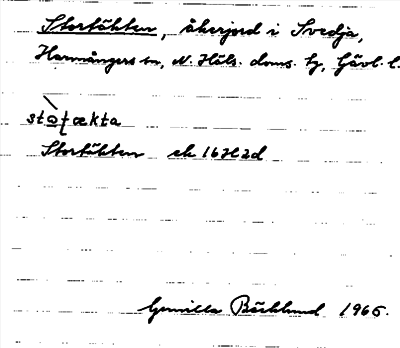 Stortäkten, åkerjord i Svedja,
Harmångers sn, N. Häls. doms. tg, Gävl. l.
sto̲ƭækta
Stortäkten ek 16H2d
Gunilla Bäcklund 1965.